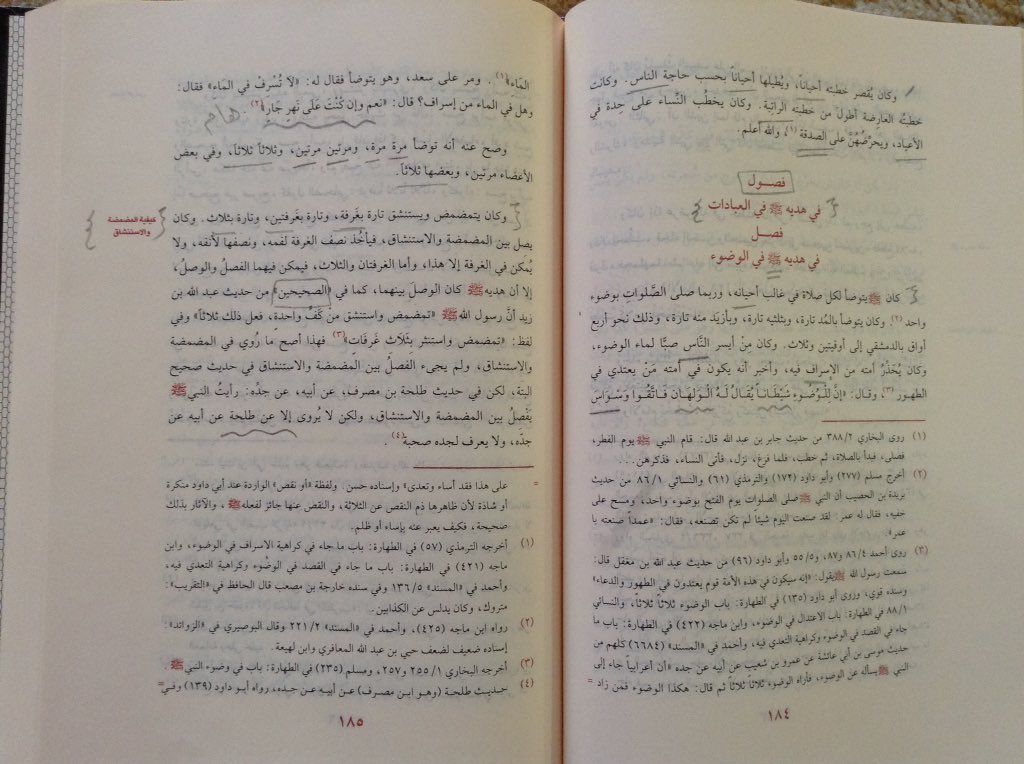 وكان يُقصر خطبته أحياناً، ويُطيلها أحياناً بحسب حاجة الناس. وكانت
خطبتُه العارضة أطولَ من خطبته الراتبة. وكان يخطُب النِّساء على حِدة في
الأعياد، ويحرِّضُهُنَّ على الصدقة (١)، والله أعلم.
فصـول
في هديه ﷺ في العبادات
فصل
في هديه ﷺ في الوضوء
كان ﷺ يتوضأ لكل صلاة في غالب أحيانه، وربما صلى الصَّلواتِ بوضوء
واحد (٢). وكان يتوضأ بالمُد تارة، وبثلثيه تارة، وبأزيَد منه تارة، وذلك نحو أربع
أواق بالدمشقي إلى أوقيتين وثلاث. وكان مِنْ أيسر النَّاس صبًّا لماء الوضوء،
وكان يُحَذِّرُ أمته من الإسراف فيه، وأخبر أنه يكون في أمته مَنْ يعتدي في
الطهور (٣)، وقال: «إنَّ لِلْوُضُوءِ شَيْطَانـاً يُقَالُ لَـهُ الْوَلَهَانِ فَـاتَّقُـوا وَسْوَاسَ
(١) روى البخاري ٣٨٨/٢ من حديث جابر بن عبد الله قال: قام النبي ﷺ يوم الفطر،
فصلى، فبدأ بالصلاة، ثم خطب، فلما فرغ، نزل، فأتى النساء، فذكرهن. . .
(٢) أخرج مسلم (٢٧٧) وأبو داود (١٧٢) والترمذي (٦١) والنسائي ٨٦/١ من حديث
بريدة بن الحصيب أن النبي ﷺ صلى الصلوات يوم الفتح بوضوء واحد، ومسح على
خفيه، فقال له عمر: لقد صنعت اليوم شيئاً لم تكن تصنعه، فقال: «عمداً صنعته يا
عمر».
(٣) روى أحمد ٨٦/٤ و٨٧، و٥٥/٥ وأبو داود (٩٦) من حديث عبد الله بن مغفل قال:
سمعت رسول الله ﷺ يقول: «إنه سيكون في هذه الأمة قوم يعتدون في الطهور والدعاء»
وسنده قوي، وروى أبو داود (١٣٥) في الطهارة: باب الوضوء ثلاثاً ثلاثاً، والنسائي
٨٨/١ في الطهارة: باب الاعتدال في الوضوء، وابن ماجة (٤٢٢) في الطهارة: باب ما
جاء في القصد في الوضوء وكراهية التعدي فيه، وأحمد في «المسند» (٦٦٨٤) كلهم من
حديث موسى بن أبي عائشة عن عمرو بن شعيب عن أبيه عن جده «أن أعرابياً جاء إلى
النبي ﷺ يسأله عن الوضوء، فأراه الوضوء ثلاثاً ثلاثاً ثم قال: هكذا الوضوء فمن زاد =
١٨٤
المَاءِ» (١). ومر على سعد، وهو يتوضأ فقال له: «لَا تُسْرِفْ في المَاء» فقال:
وهل في الماء من إسراف؟ قال: «نعم وإن كُنْتَ عَلَى نَهرٍ جَارٍ» (٢).
وصح عنه أنه توضأ مرة مَرة، ومرتين مرتين، وثلاثاً ثلاثاً، وفي بعض
الأعضاء مرتين، وبعضها ثلاثاً.
كيفية المضمضة
والاستنشاق
وكان يتمضمض ويستنشق تارة بغَرفة، وتارة بغَرفتين، وتارة بثلاث. وكان
يصل بين المضمضة والاستنشاق، فيأخُذ نصف الغرفة لفمه، ونصفها لأنفه، ولا
يُمكن في الغرفة إلا هذا، وأما الغرفتان والثلاث، فيمكن فيهما الفصلُ والوصلُ،
إلا أن هديه ﷺ كان الوصلَ بينهما، كما في «الصحيحين» من حديث عبد الله بن
زيد أنَّ رسول الله ﷺ «تمضمض واستنشق من كَفٍّ واحدةٍ، فعل ذلك ثلاثاً» وفي
لفظ: «تمضمض واستنثر بِثَلَاثِ غَرفَاتٍ» (٣) فهذا أصح ما رُوي في المضمضة
والاستنشاق، ولم يجىء الفصلُ بين المضمضة والاستنشاق في حديث صحيح
البتة، لكن في حديث طلحة بن مصرف، عن أبيه، عن جدِّه: رأيتُ النبي ﷺ
يَفْصِلُ بين المضمضة والاستنشاق، ولكن لا يُروى إلا عن طلحة عن أبيه عن
جدِّه، ولا يعرف لجده صحبة (٤).
= على هذا فقد أساء وتعدى» وإسناده حسن. ولفظة «أو نقص» الواردة عند أبي داود منكرة
أو شاذة لأن ظاهرها ذم النقص عن الثلاثة، والنقص عنها جائز لفعله ﷺ، والآثار بذلك
صحيحة، فكيف يعبر عنه بإساء أو ظلم.
(١) أخرجه الترمذي (٥٧) في الطهارة: باب ما جاء في كراهية الاسراف في الوضوء، وابن
ماجه (٤٢١) في الطهارة: باب ما جاء في القصد في الوضوء وكراهية التعدي فيه،
وأحمد في «المسند» ١٣٦/٥ وفي سنده خارجة بن مصعب قال الحافظ في «التقريب»:
متروك، وكان يدلس عن الكذابين.
(٢) رواه ابن ماجه (٤٢٥)، وأحمد في «المسند» ٢٢١/٢ وقال البوصيري في «الزوائد»:
إسناده ضعيف لضعف حيي بن عبد الله المعافري وابن لهيعة.
(٣) أخرجه البخاري ٢٥٥/١ و٢٥٧، ومسلم (٢٣٥) في الطهارة: باب في وضوء النبي ﷺ.
(٤) حديث طلحة (وهو ابن مصرف) عن أبيه عن جده، رواه أبو داود (١٣٩) وفي =
١٨٥